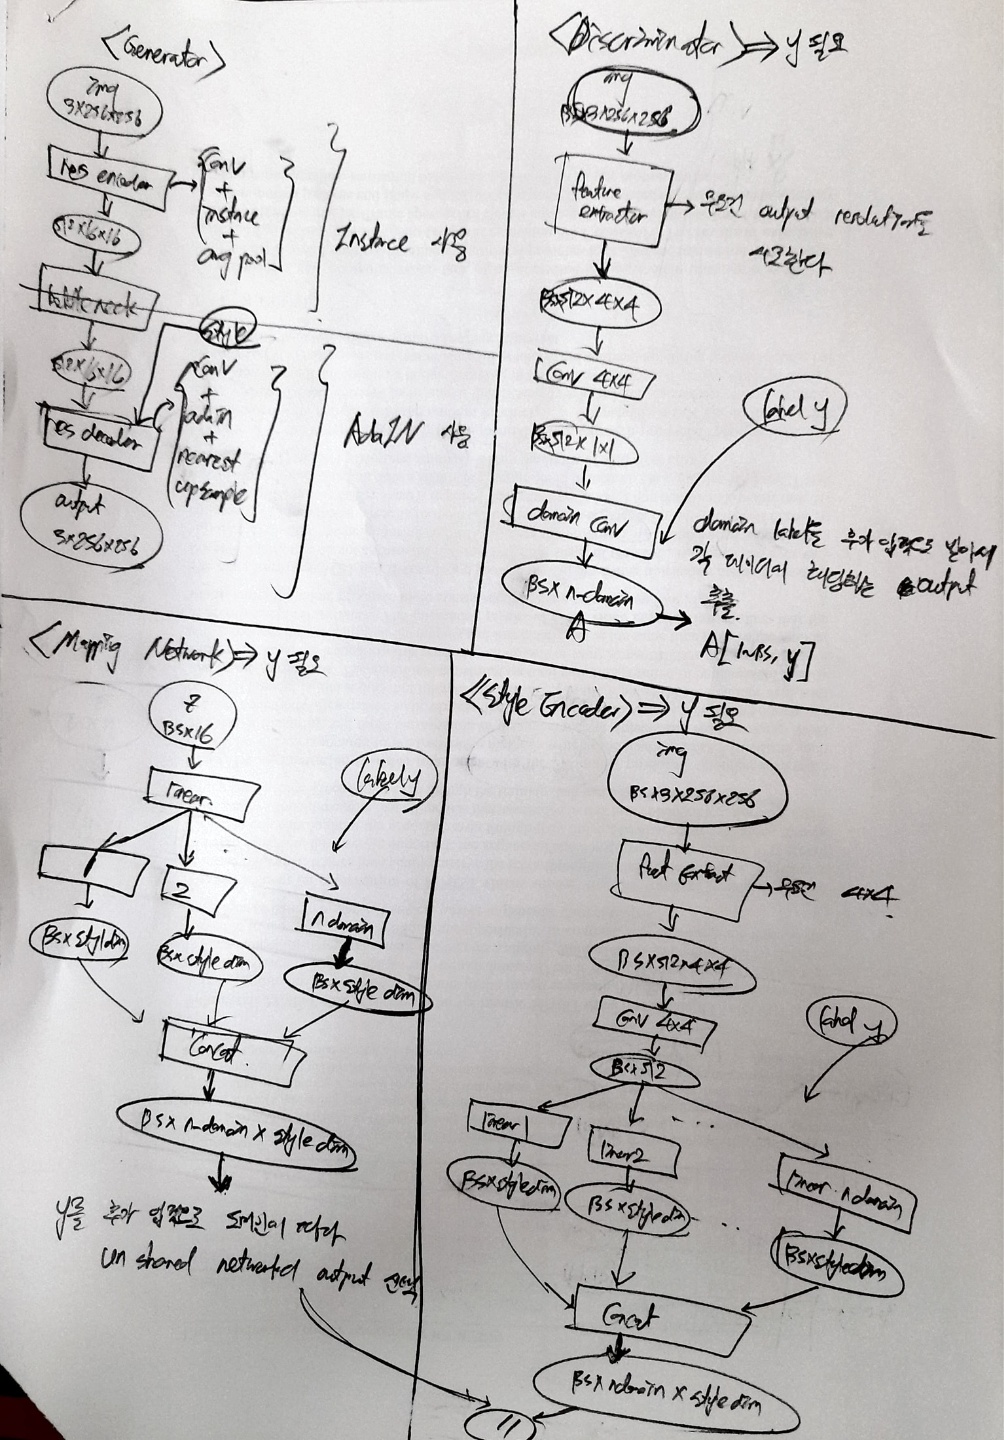 <Generator>
img
3×256×256
res encoder
conv
+
instance
+
avg pool
Instance 사용
512×16×16
bottleneck
style
512×16×16
res decoder
conv
+
adain
+
nearest
upsample
AdaIN 사용
output
3×256×256
<Discriminator> ⇒ y 필요
img
BS×3×256×256
feature
extractor
무조건 output resolution을
4×4로 한다
BS×512×4×4
Conv 4×4
BS×512×1×1
label y
domain conv
domain label을 추가 입력으로 받아서
각 데이터에 해당하는 output
추출.
BS×n-domain
A
A[in BS, y]
<Mapping Network> ⇒ y 필요
z
BS×16
linear
label y
1
2
n domain
BS×style dim
BS×style dim
BS×style dim
Concat
BS×n-domain×style dim
y를 추가 입력으로 도메인에 따라
un shared network의 output 선택
<Style Encoder> ⇒ y 필요
img
BS×3×256×256
feat extract
무조건 4×4
BS×512×4×4
Conv 4×4
label y
BS×512
linear 1
linear 2
...
linear n domain
BS×style dim
BS×style dim
...
BS×style dim
Concat
BS×n domain×style dim
"